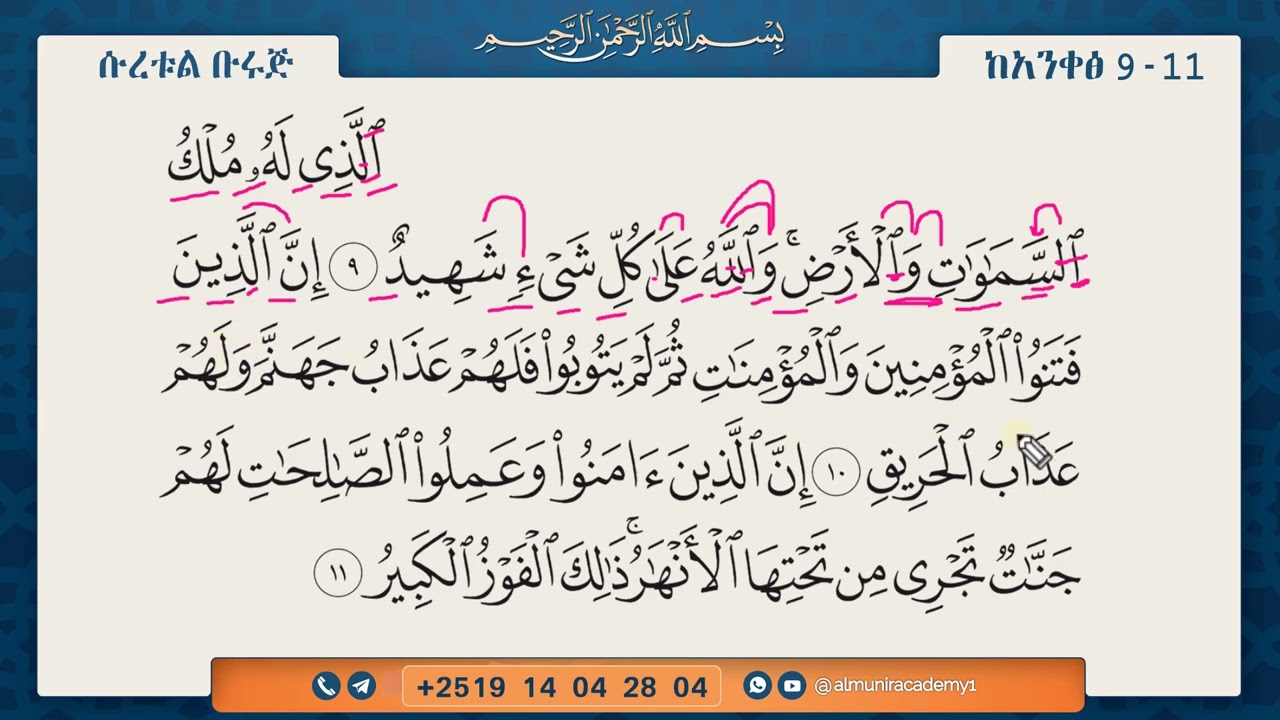 بِسْمِ ٱللَّهِ ٱلرَّحْمَٰنِ ٱلرَّحِيمِ
ሱረቱል ቡሩጅ
ከአንቀፅ 9 - 11
ٱلَّذِى لَهُۥ مُلْكُ
ٱلسَّمَٰوَٰتِ وَٱلْأَرْضِ ۚ وَٱللَّهُ عَلَىٰ كُلِّ شَىْءٍ شَهِيدٌ ٩ إِنَّ ٱلَّذِينَ
فَتَنُوا۟ ٱلْمُؤْمِنِينَ وَٱلْمُؤْمِنَٰتِ ثُمَّ لَمْ يَتُوبُوا۟ فَلَهُمْ عَذَابُ جَهَنَّمَ وَلَهُمْ
عَذَابُ ٱلْحَرِيقِ ١٠ إِنَّ ٱلَّذِينَ ءَامَنُوا۟ وَعَمِلُوا۟ ٱلصَّٰلِحَٰتِ لَهُمْ
جَنَّٰتٌ تَجْرِى مِن تَحْتِهَا ٱلْأَنْهَٰرُ ۚ ذَٰلِكَ ٱلْفَوْزُ ٱلْكَبِيرُ ١١
+2519 14 04 28 04
@almuniracademy1